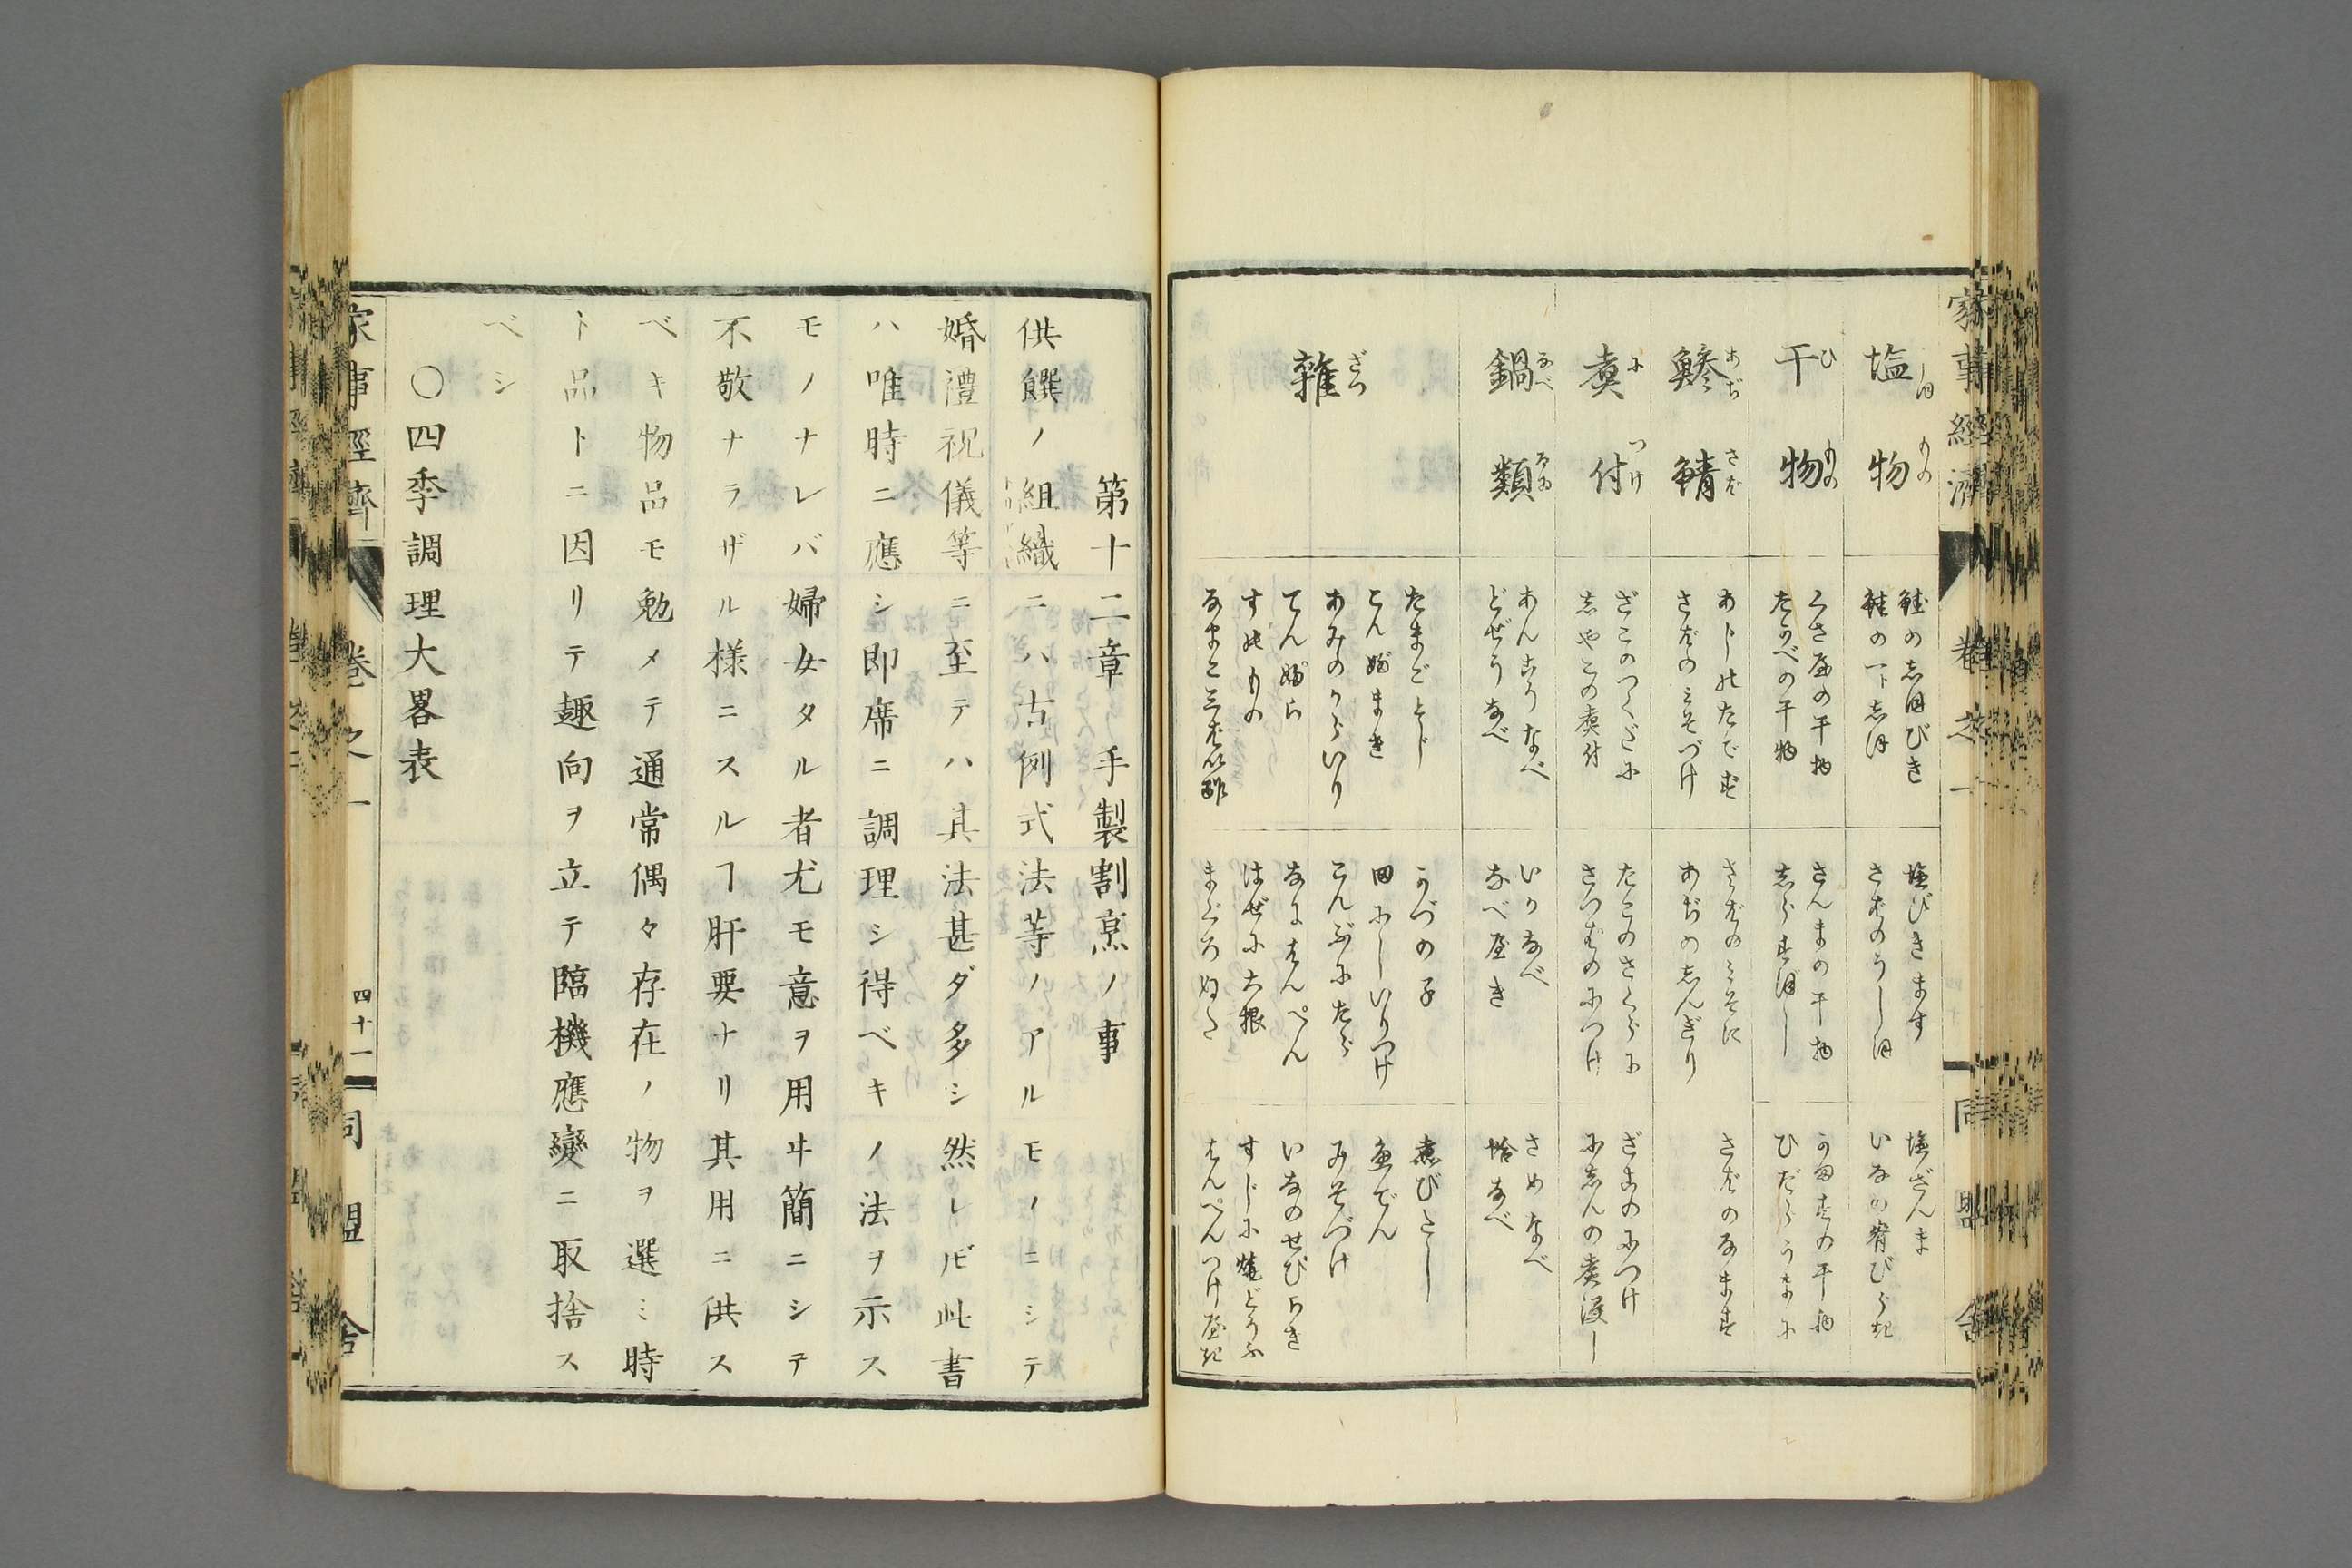 家事経済
巻之一
同盟舎
塩物
しほ もの
鮭の志ほびき
鮭の一ト志ほ
塩びきます
さばのうしほ
塩ざんま
干物
ひ もの
くさやの干物
たかべの干物
さんまの干物
志らすぼし
かますの干物
ひだらうまに
鰺鯖
あぢ さば
あじのたでず
さばのみそづけ
さばのみそに
あぢの志んぎり
さばのなます
煑付
に つけ
ざこのつくだに
志やこの煑付
たこのさくらに
さつまのにつけ
ざこのにつけ
にしんの煑浸し
鍋類
なべ るゐ
あんかうなべ
どぜうなべ
いかなべ
なべ屋き
さめなべ
蛤なべ
雜
ざつ
たまごとじ
こんぶまき
あみのからいり
てんぷら
すのもの
なまこ三ばい酢
かづの子
田にしいりつけ
こんぶにたら
なにはんぺん
はぜに大根
まぐろぬた
煮びたし
魚でん
みそづけ
いなのせびらき
すじに焼どうふ
はんぺんつけ屋き
第十二章　手製割烹ノ事
供饌ノ組織ニハ古例式法等ノアルモノニシテ
婚禮祝儀等ニ至テハ其法甚ダ多シ然レ𪜈此書
ハ唯時ニ應シ即席ニ調理シ得ベキノ法ヲ示ス
モノナレバ婦女タル者尤モ意ヲ用ヰ簡ニシテ
不敬ナラザル様ニスルヿ肝要ナリ其用ニ供ス
ベキ物品モ勉メテ通常偶々存在ノ物ヲ選ミ時
ト品トニ因リテ趣向ヲ立テ臨機應變ニ取捨ス
ベシ
〇四季調理大畧表
家事經濟
巻之一
四十一
同盟舎